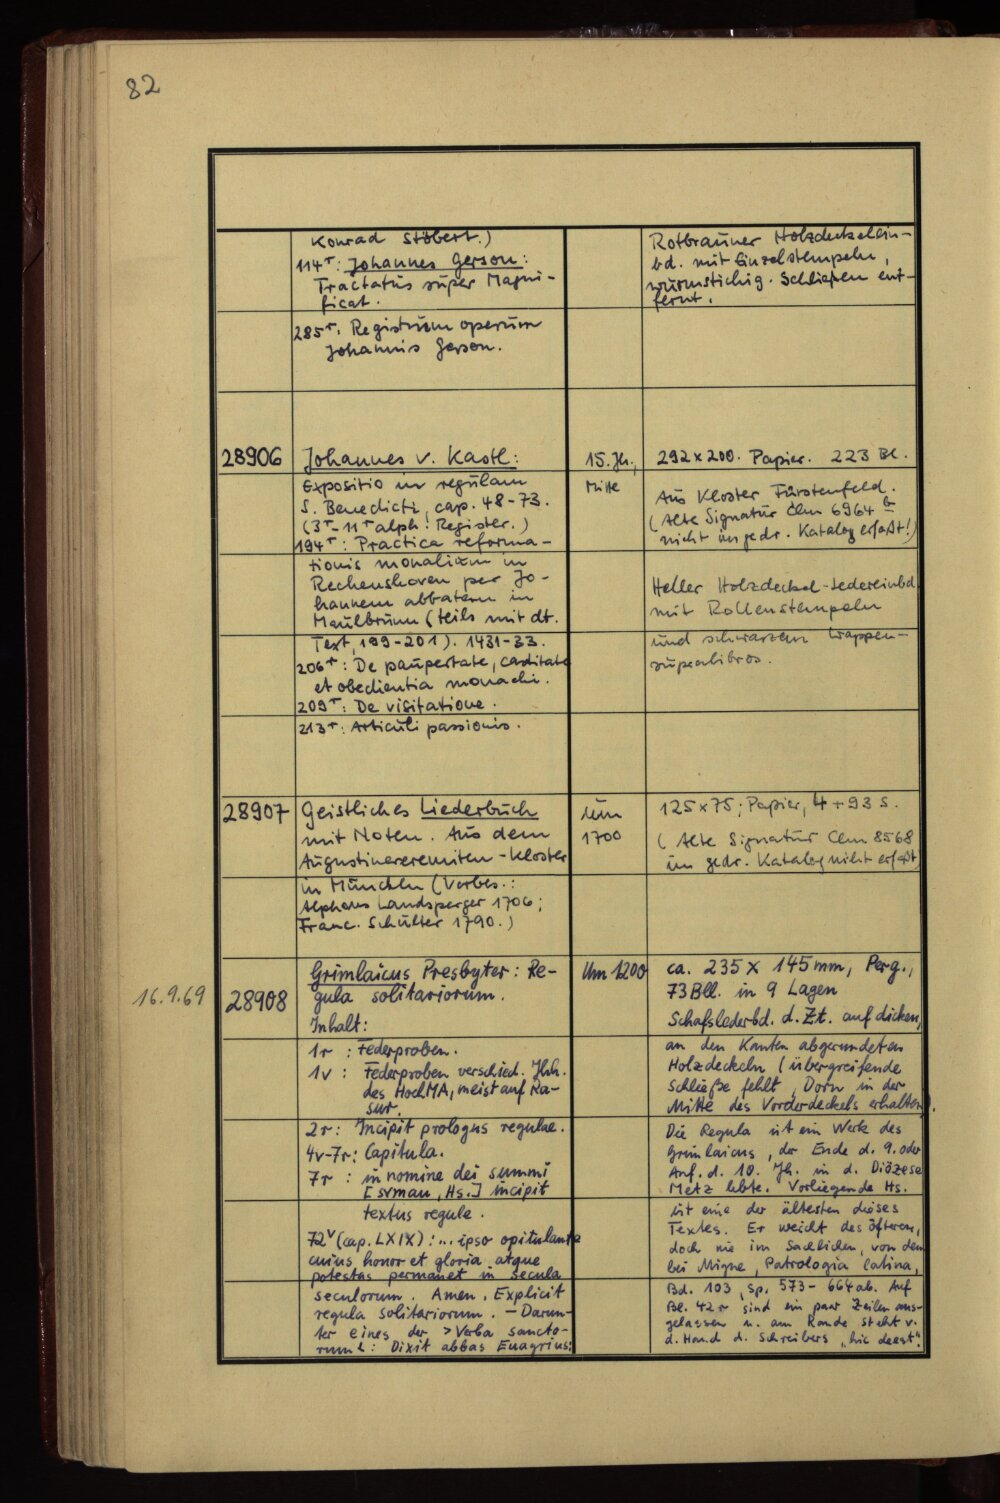 82
Konrad Stöbert.)
114r: Johannes Gerson:
Tractatus super Magni-
ficat.
285r: Registrum operum
Johannis Gerson.
Rotbrauner Holzdeckelein-
bd. mit Einzelstempeln,
wurmstichig. Schließen ent-
fernt.
28906
Johannes v. Kastl:
Expositio in regulam
S. Benedicti, cap. 48-73.
(3r-11r alph. Register.)
194r: Practica reforma-
tionis monalium in
Rechenshoven per Jo-
hannem abbatem in
Maulbrunn (teils mit dt.
Text, 199-201). 1431-33.
206r: De paupertate, castitate
et obedientia monachi.
209r: De visitatione.
213r: Articuli passionis.
15. Jh.,
Mitte
292 x 200. Papier. 223 Bl.
Aus Kloster Fürstenfeld.
(Alte Signatur Clm 6964 b
nicht im gedr. Katalog erfaßt!)
Heller Holzdeckel-Ledereinbd.
mit Rollenstempeln
und schwarzem Wappen-
supralibros.
28907
Geistliches Liederbuch
mit Noten. Aus dem
Augustinereremiten-Kloster
in München (Vorbes.:
Alphons Landsperger 1706;
Franc. Schulter 1790.)
um
1700
125 x 75; Papier, 4 + 93 S.
(Alte Signatur Clm 8568
im gedr. Katalog nicht erfaßt)
16.9.69
28908
Grimlaicus Presbyter: Re-
gula solitariorum.
Inhalt:
1r : Federproben.
1v : Federproben verschied. Jhh.
des HochMA, meist auf Ra-
sur.
2r : Incipit prologus regulae.
4v-7r: Capitula.
7r : in nomine dei summi
[svmau, Hs.] incipit
textus regule.
72v (cap. LXIX): ... ipso opitulante
cuius honor et gloria atque
potestas permanet in secula
seculorum. Amen. Explicit
regula solitariorum. - Darun-
ter eines der >Verba sancto-
rum<: Dixit abbas Euagrius:
Um 1200
ca. 235 x 145 mm, Perg.,
73 Bll. in 9 Lagen
Schafslederbd. d. Zt. auf dicken,
an den Kanten abgerundeten
Holzdeckeln (übergreifende
Schließe fehlt, Dorn in der
Mitte des Vorderdeckels erhalten).
Die Regula ist ein Werk des
Grimlaicus, der Ende d. 9. oder
Anf. d. 10. Jh. in d. Diözese
Metz lebte. Vorliegende Hs.
ist eine der ältesten dieses
Textes. Er weicht des öfteren,
doch nie im Sachlichen, von dem
bei Migne, Patrologia latina,
Bd. 103, Sp. 573-664 ab. Auf
Bl. 42r sind ein paar Zeilen aus-
gelassen u. am Rande steht v.
d. Hand d. Schreibers "hic deest".